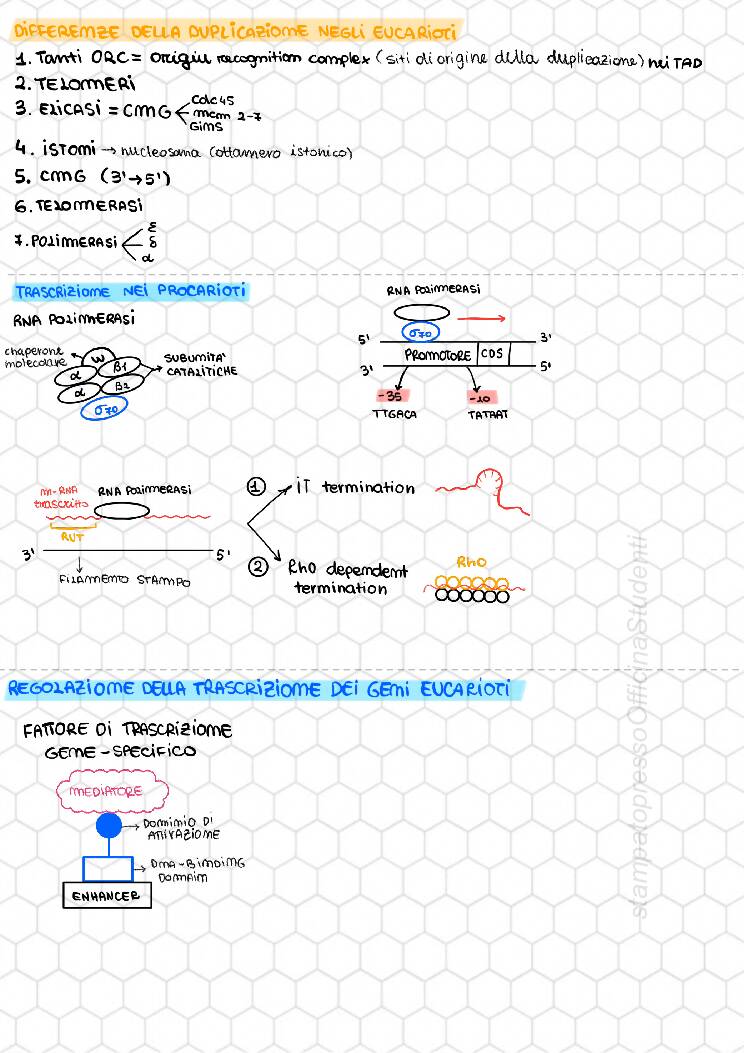 DIFFERENZE DELLA DUPLICAZIONE NEGLI EUCARIOTI
1. Tanti ORC = Origin recognition complex (siti di origine della duplicazione) nei TAD
2. TELOMERI
3. ELICASI = CMG
Cdc45
mcm 2-7
GimS
4. iSTONi → nucleosoma (ottamero istonico)
5. CMG (3'→5')
6. TELOMERASI
7. POLIMERASI
ε
δ
α
TRASCRIZIONE NEI PROCARIOTI
RNA POLIMERASI
chaperone
molecolare
W
α
α
β1
β2
σ70
SUBUNITA'
CATALITICHE
RNA POLIMERASI
σ70
5'
3'
PROMOTORE
CDS
3'
5'
-35
-10
TTGACA
TATAAT
m-RNA
trascritto
RNA POLIMERASI
RUT
3'
5'
FILAMENTO STAMPO
1
iT termination
2
Rho dependent
termination
Rho
REGOLAZIONE DELLA TRASCRIZIONE DEI GENI EUCARIOTI
FATTORE DI TRASCRIZIONE
GENE-SPECIFICO
MEDIATORE
DOMINIO DI
ATTIVAZIONE
DNA-BINDING
DOMAIN
ENHANCER
stampatopressoOfficinaStudenti